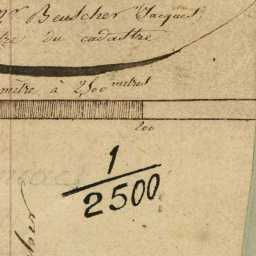 Mr Beuscher Jacques
du cadastre
mètre à 2500 mètres
200
1/2500